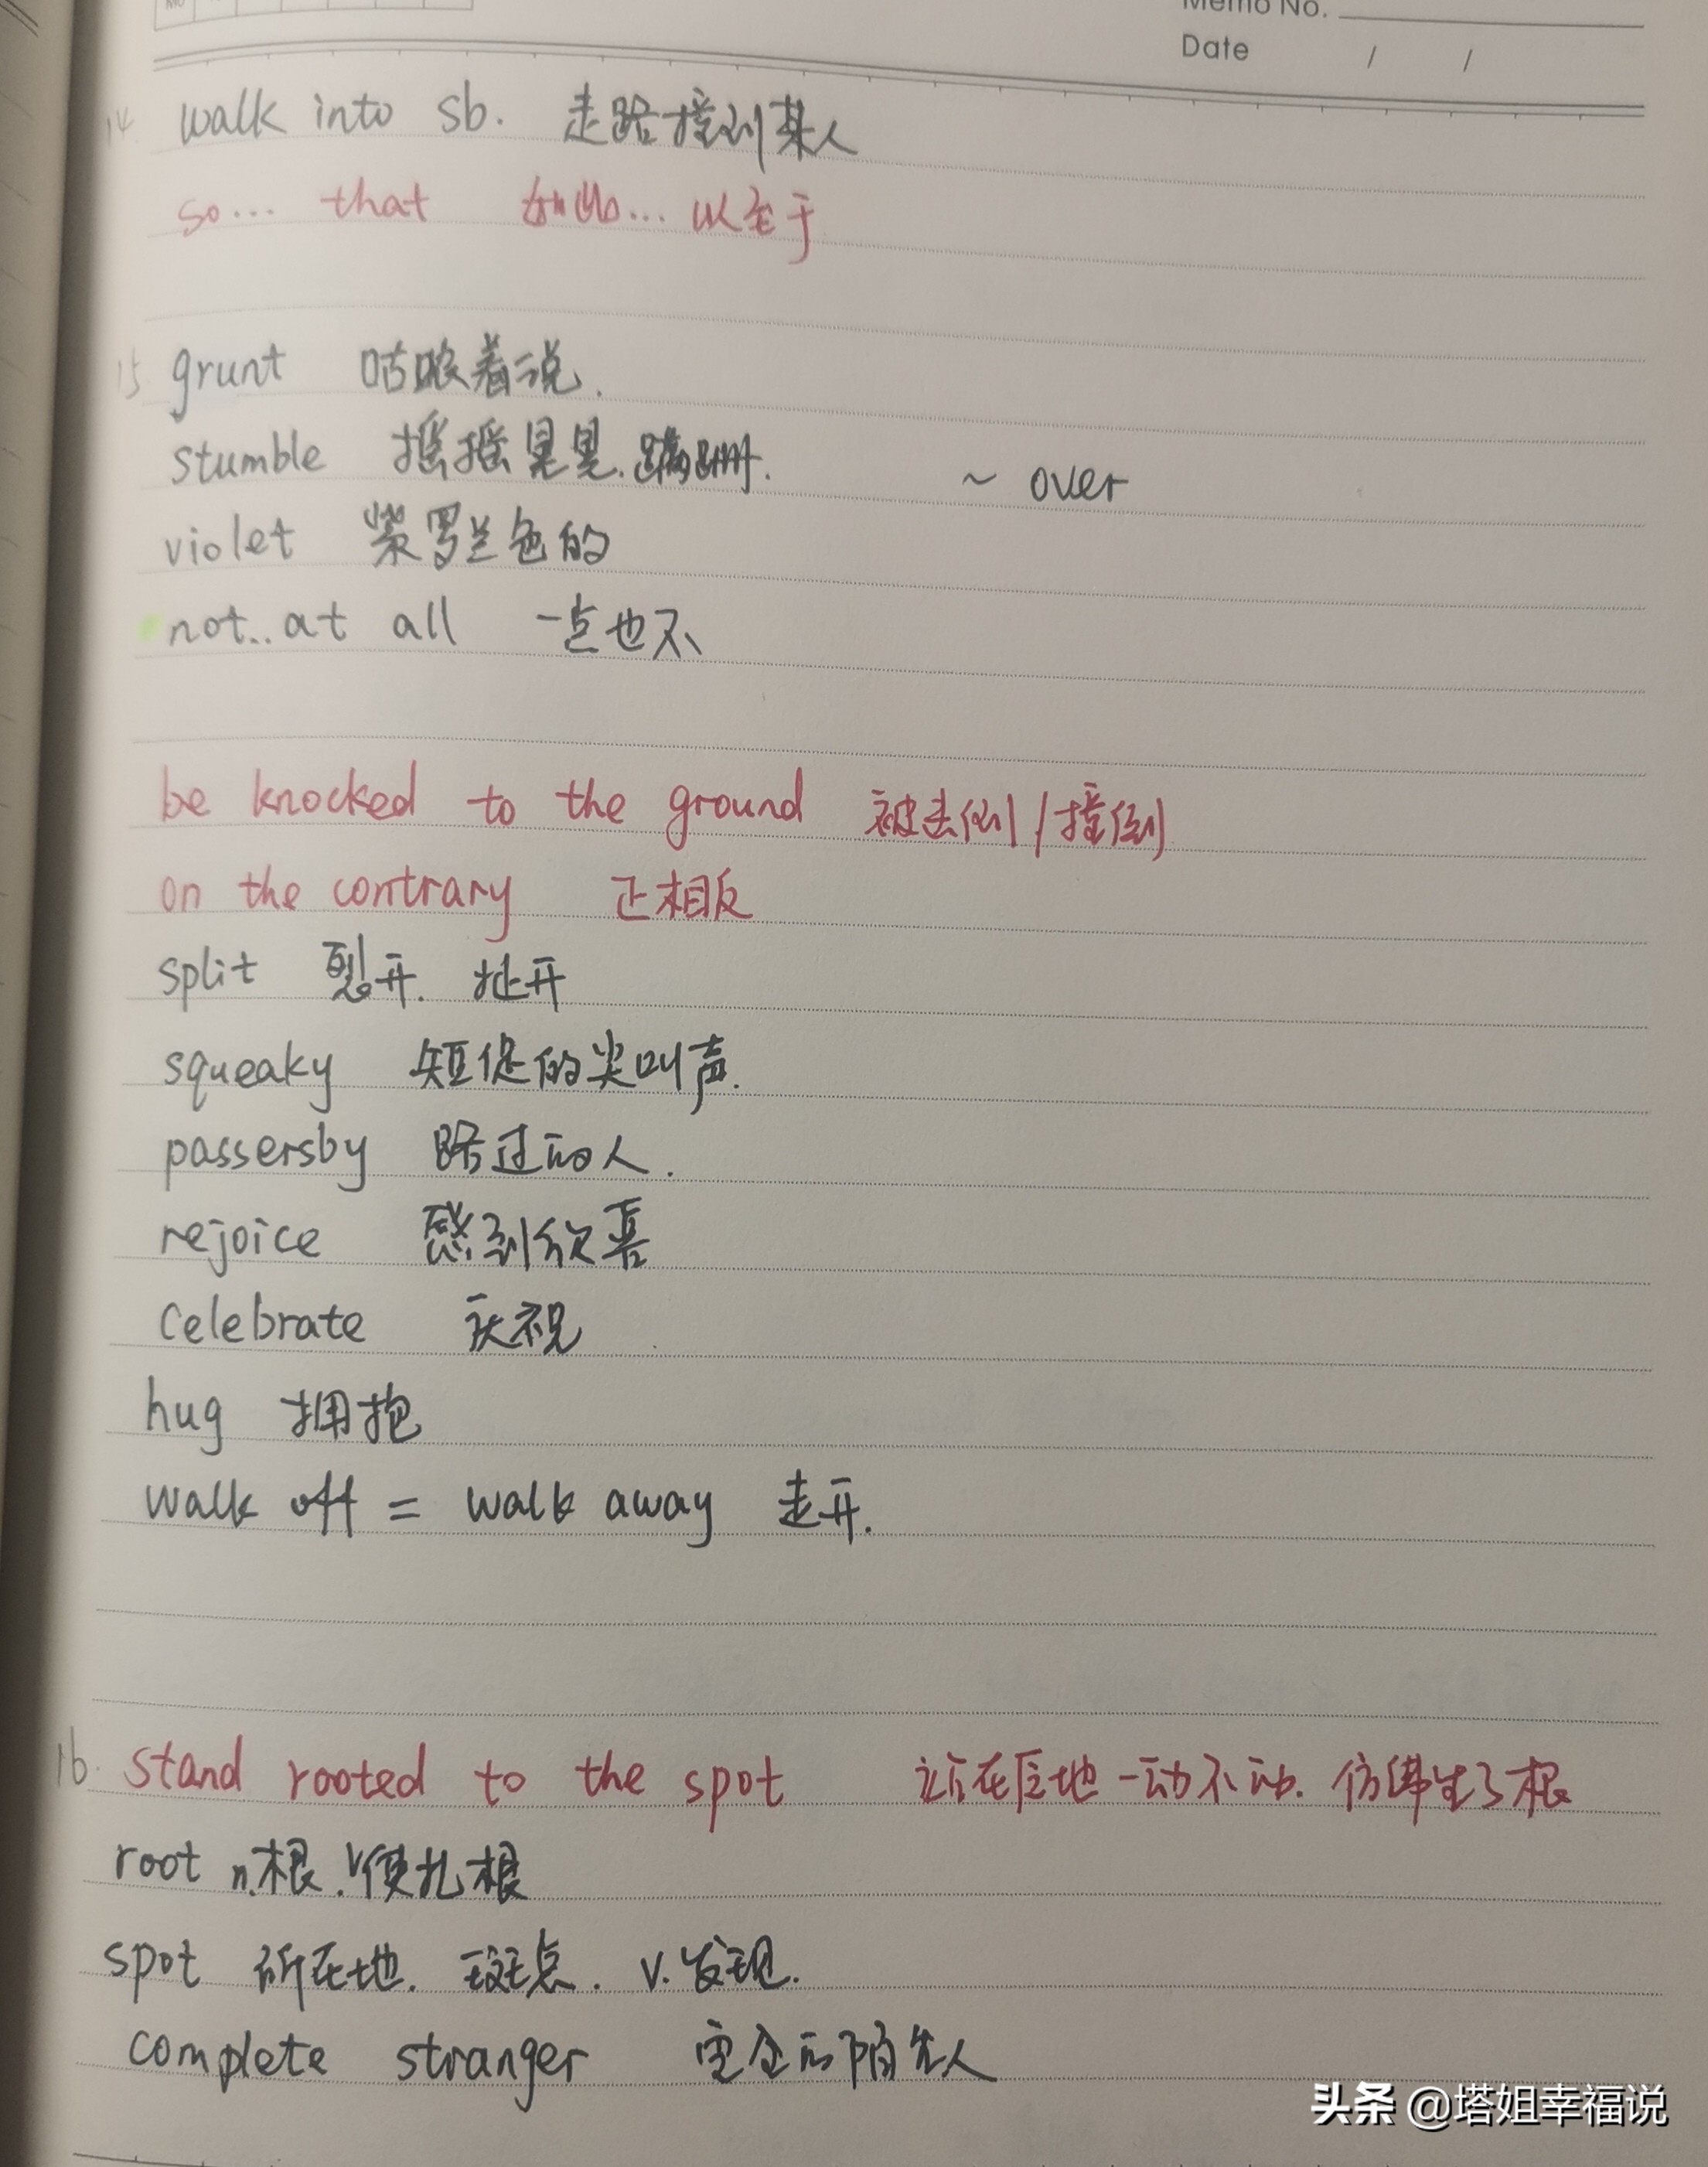 Memo No.
Date / /
14 walk into sb. 走路撞到某人
so... that 如此... 以至于
15 grunt 咕哝着说.
stumble 摇摇晃晃.蹒跚. ~ over
violet 紫罗兰色的
not..at all 一点也不
be knocked to the ground 被击倒/撞倒
on the contrary 正相反
split 裂开. 扯开
squeaky 短促的尖叫声.
passersby 路过的人.
rejoice 感到欣喜
celebrate 庆祝
hug 拥抱
walk off = walk away 走开.
16. stand rooted to the spot 站在原地一动不动. 仿佛生了根
root n.根. v使扎根
spot 所在地. 斑点. v.发现.
complete stranger 完全的陌生人
头条 @塔姐幸福说